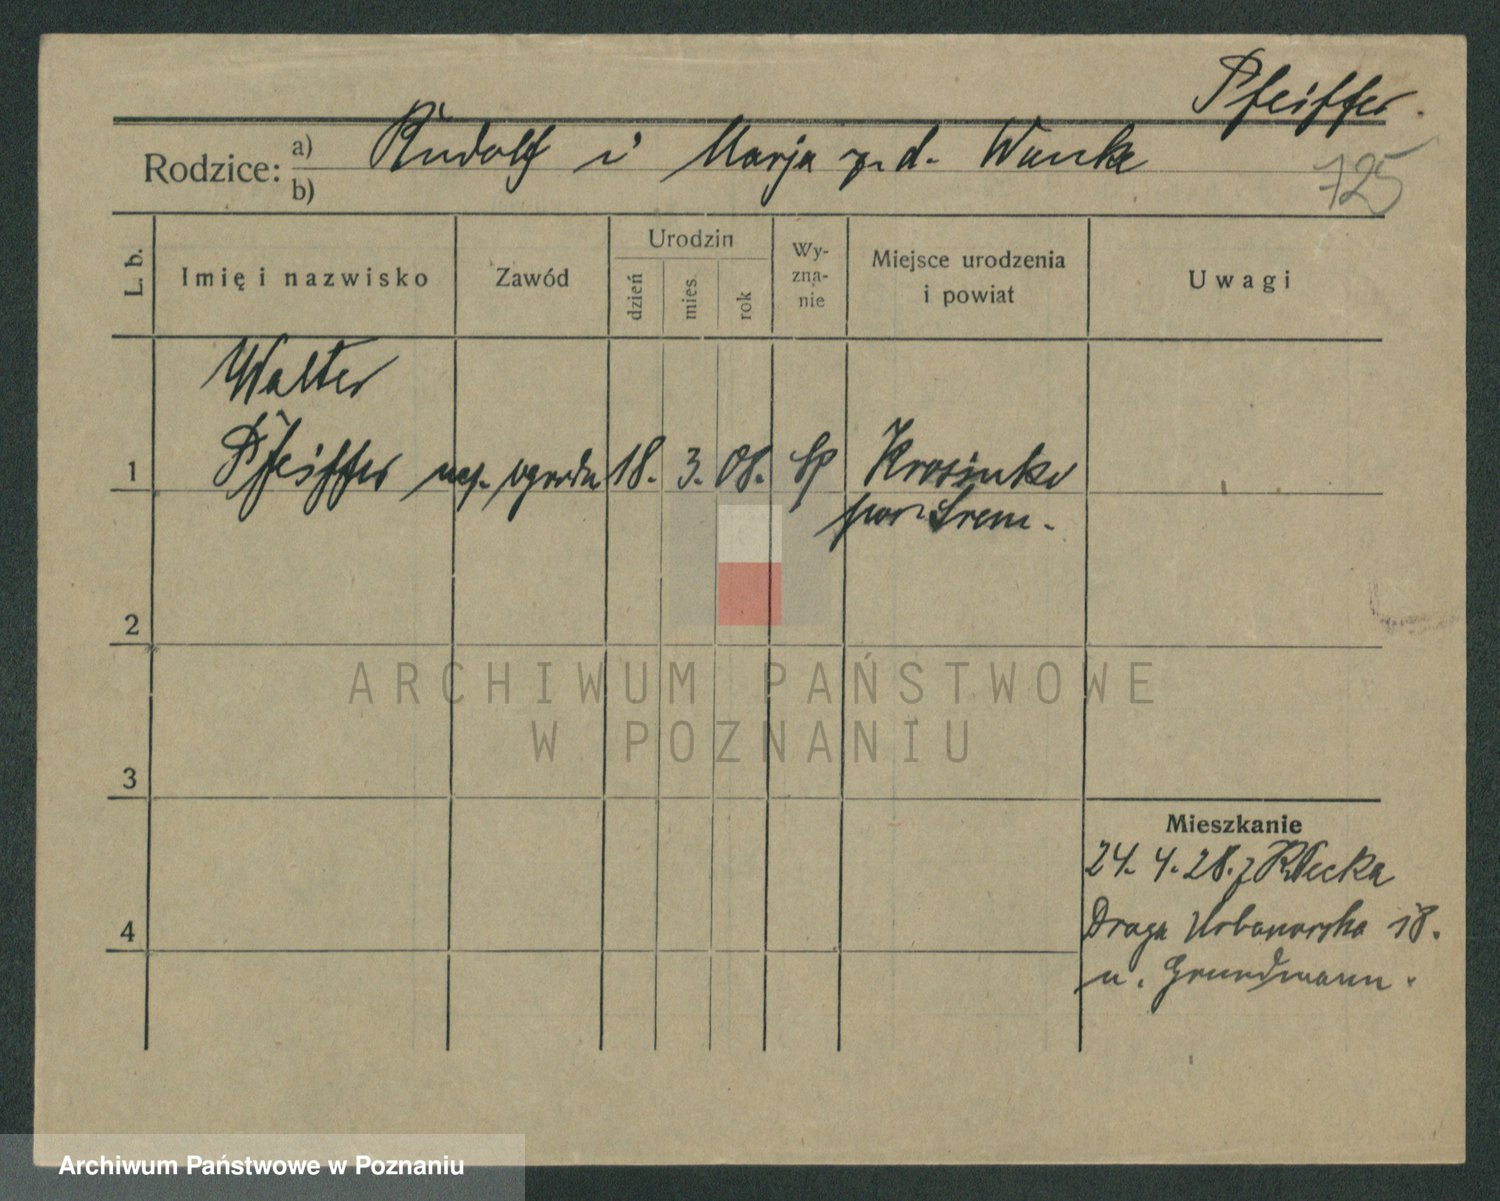 Pfeiffer.
Rodzice: a) Rudolf i Marja z d. Wanke
b)
725
L. b.
Imię i nazwisko
Zawód
Urodzin
dzień
mies.
rok
Wy-
zna-
nie
Miejsce urodzenia
i powiat
Uwagi
Walter
1 Pfeiffer ucz. ogrodn 18. 3. 08. Krosinko
pow. Śrem.
2
3
4
Mieszkanie
24. 4. 28. z
Droga Urbanowska 18.
u. Grundmann.
ARCHIWUM PAŃSTWOWE
W POZNANIU
Archiwum Państwowe w Poznaniu